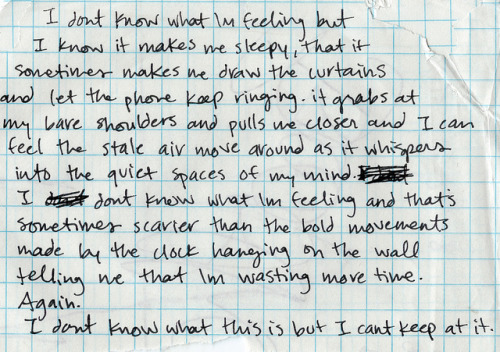 I dont know what Im feeling but
I know it makes me sleepy, that it
sometimes makes me draw the curtains
and let the phone keep ringing. it grabs at
my bare shoulders and pulls me closer and I can
feel the stale air move around as it whispers
into the quiet spaces of my mind.
I dont know what Im feeling and that's
sometimes scarier than the bold movements
made by the clock hanging on the wall
telling me that Im wasting more time.
Again.
I dont know what this is but I cant keep at it.